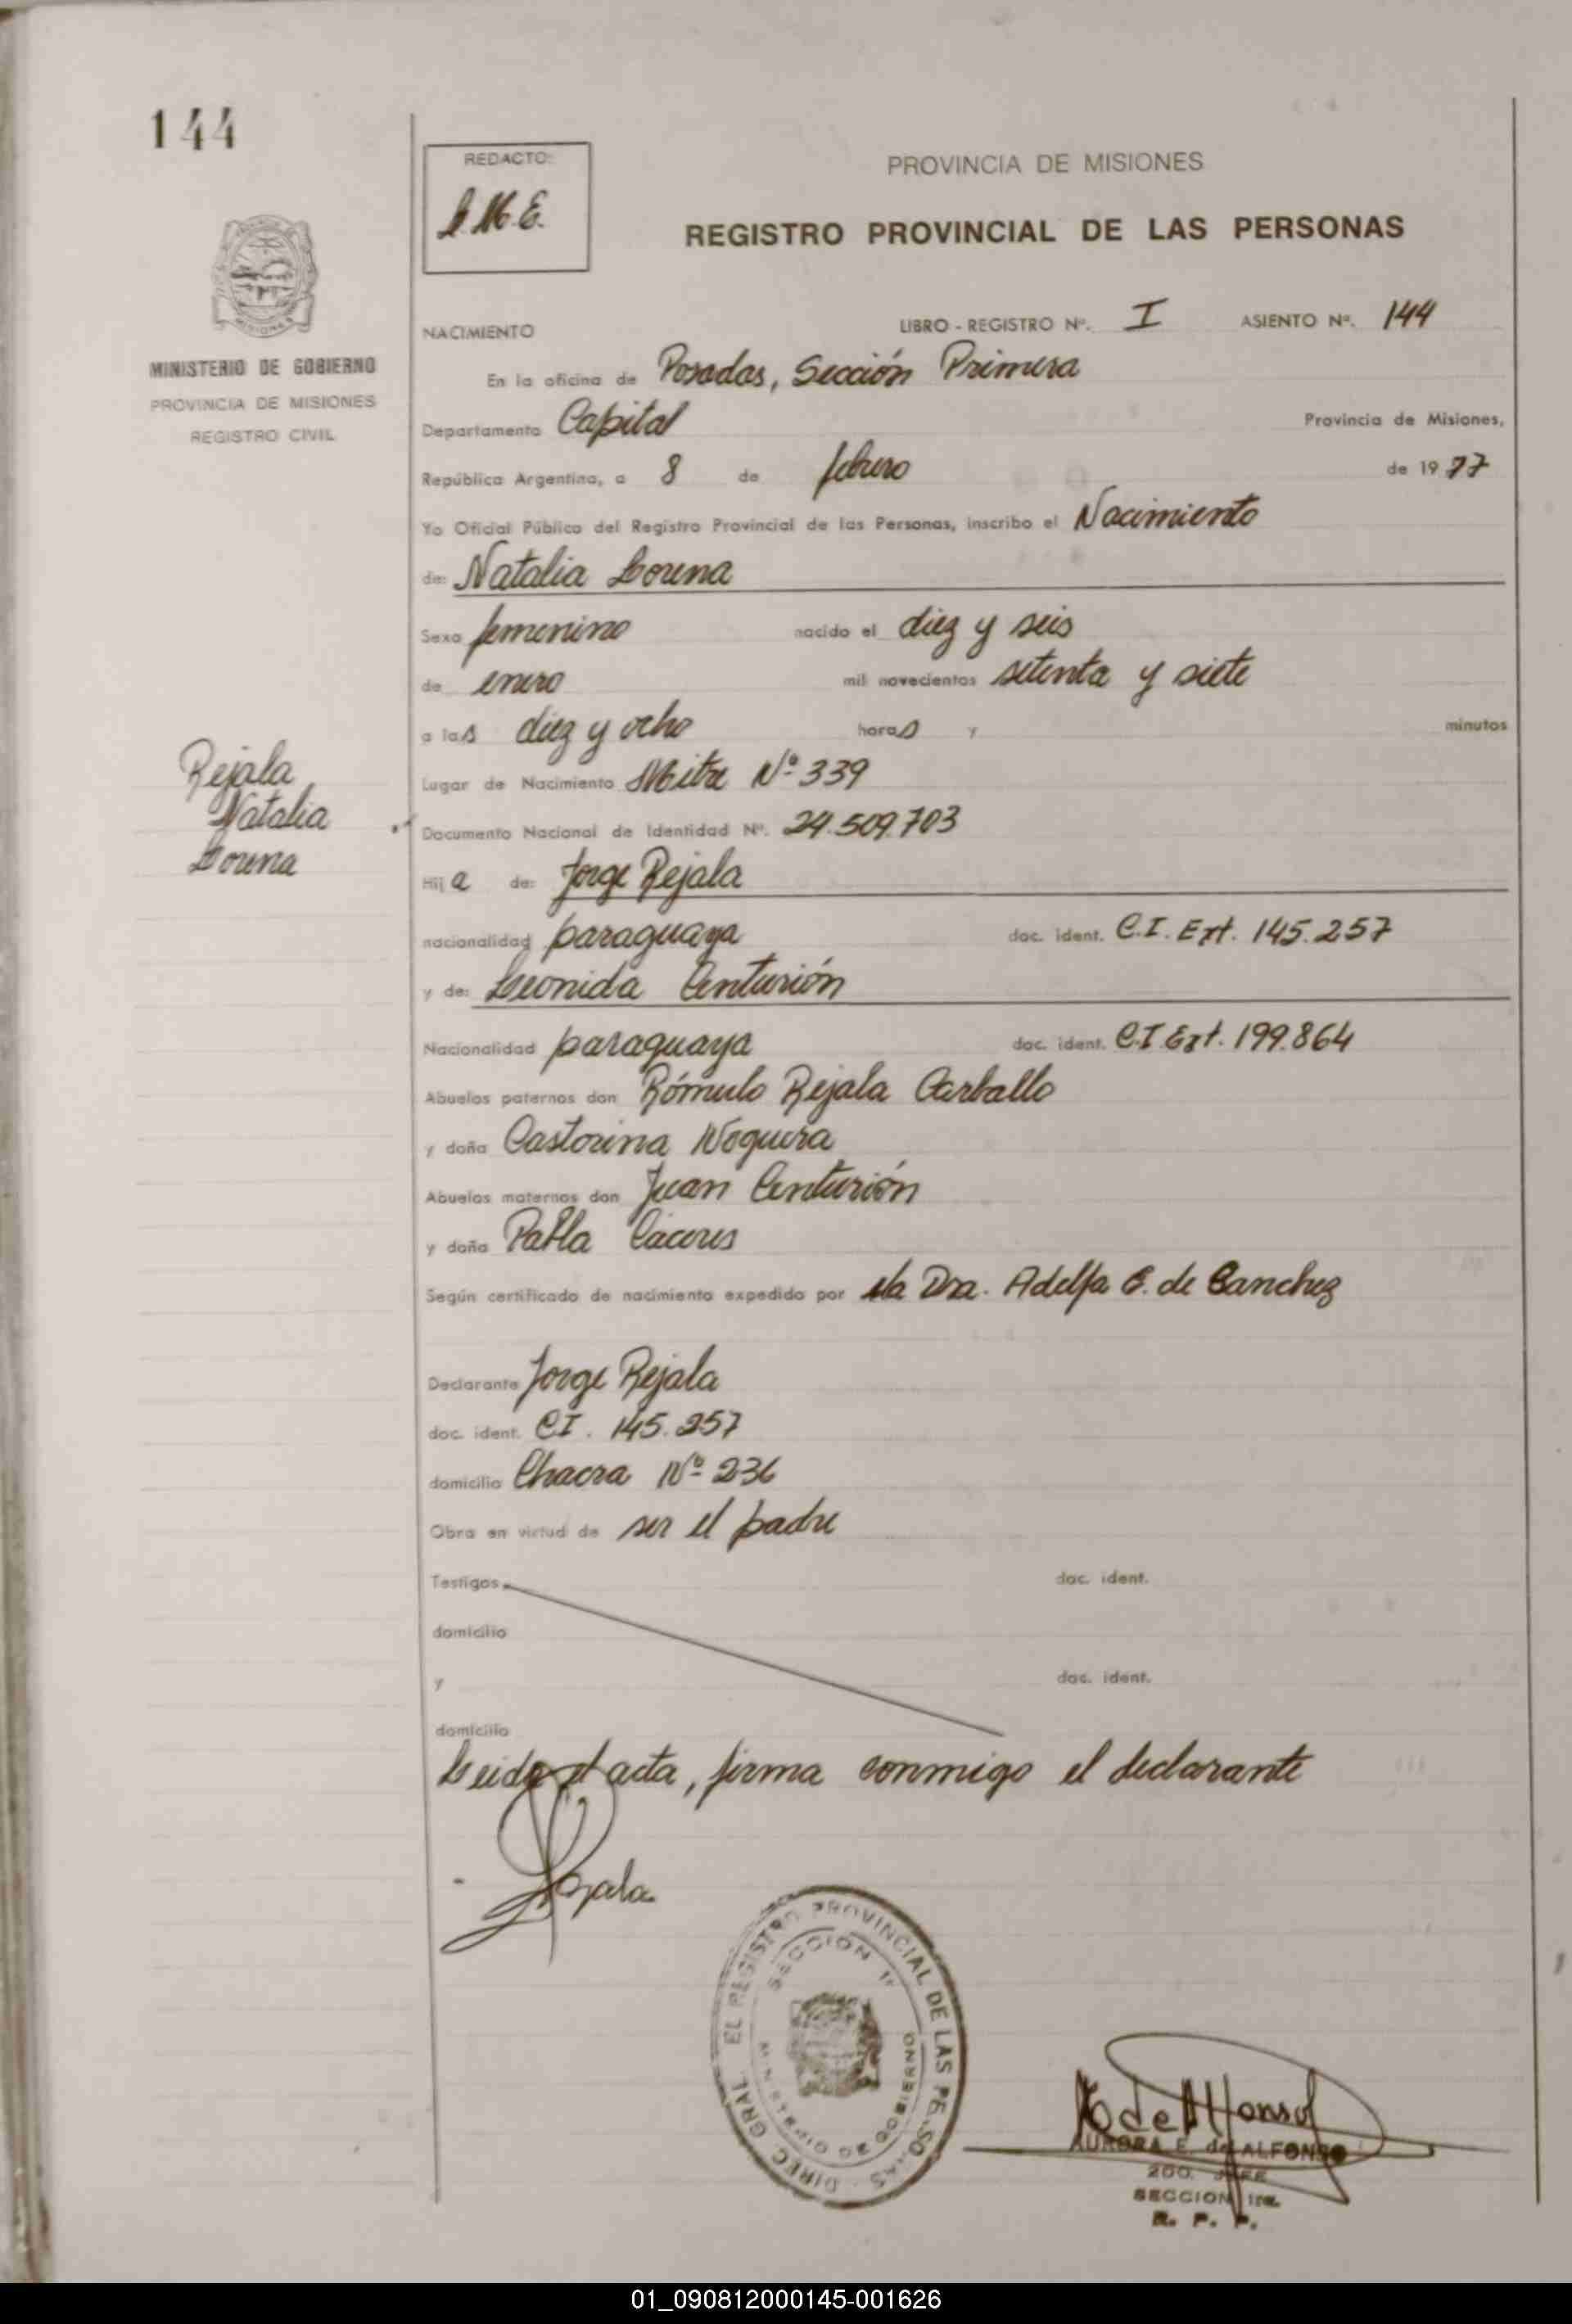 144
REDACTO:
L.M.E.
PROVINCIA DE MISIONES
REGISTRO PROVINCIAL DE LAS PERSONAS
MINISTERIO DE GOBIERNO
PROVINCIA DE MISIONES
REGISTRO CIVIL
NACIMIENTO LIBRO - REGISTRO Nº. I ASIENTO Nº. 144
En la oficina de Posadas, Sección Primera
Departamento Capital Provincia de Misiones,
República Argentina, a 8 de febrero de 1977
Yo Oficial Público del Registro Provincial de las Personas, inscribo el Nacimiento
de: Natalia Lorena
Sexo femenino nacido el diez y seis
de enero mil novecientos setenta y siete
a las diez y ocho horas y minutos
Rejala
Natalia
Lorena
Lugar de Nacimiento Mitre Nº 339
Documento Nacional de Identidad Nº. 24.509.703
Hija de: Jorge Rejala
nacionalidad paraguaya doc. ident. C.I. Ext. 145.257
y de: Leonida Centurión
Nacionalidad paraguaya doc. ident. C.I Ext. 199.864
Abuelos paternos don Rómulo Rejala Carballo
y doña Castorina Noguera
Abuelos maternos don Juan Centurión
y doña Pabla Cáceres
Según certificado de nacimiento expedido por la Dra. Adelfa C. de Sanchez
Declarante Jorge Rejala
doc. ident. CI. 145.257
domicilio Chacra Nº 236
Obra en virtud de ser el padre
Testigos doc. ident.
domicilio
y doc. ident.
domicilio
Leida el acta, firma conmigo el declarante
DIREC. GRAL. EL REGISTRO PROVINCIAL DE LAS PERSONAS
SECCION 1ª
MINISTERIO DE GOBIERNO
AURORA E. de ALFONSO
2DO. JEFE
SECCION 1ra.
R. P. P.
01_090812000145-001626